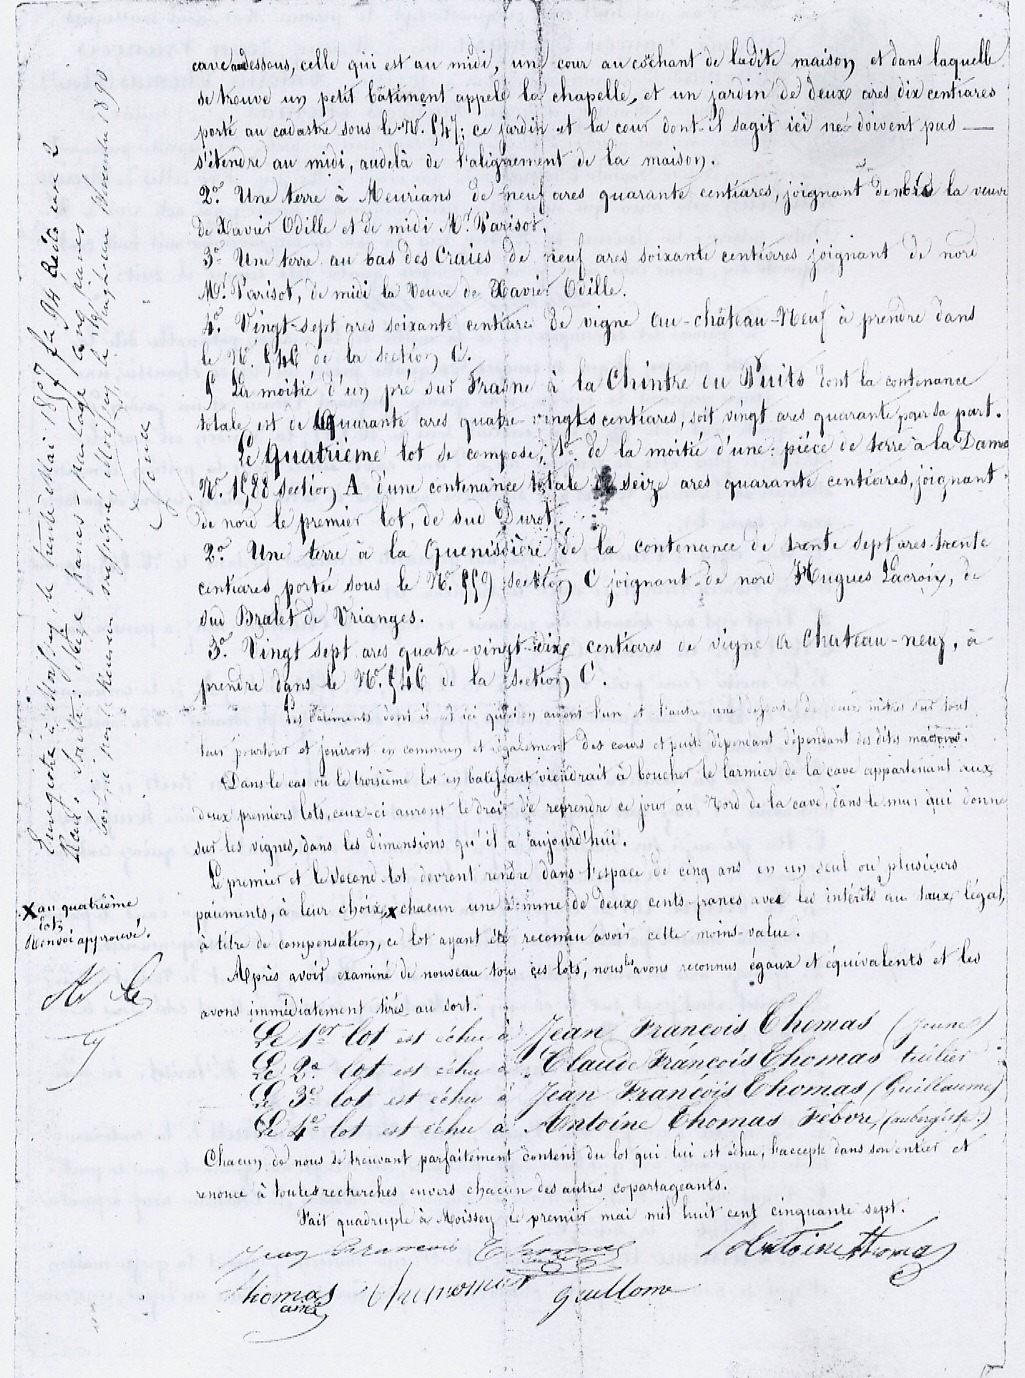 cave audessous, celle qui est au midi, une cour au couchant de ladite maison et dans laquelle
se trouve un petit bâtiment appelé la chapelle, et un jardin de deux ares dix centiares
porté au cadastre sous le N°. 547; ce jardin et la cour dont il sagit ici ne doivent pas —
s'étendre au midi, audelà de l'alignement de la maison.
2°. Une terre à Meurians de neuf ares quarante centiares, joignant de nord la veuve
de Xavier Odille et de midi Mr. Parisot.
3° Une terre au bas des Craies de neuf ares soixante centiares joignant de nord
Mr. Parisot, de midi la Veuve de Xavier Odille.
4°. Vingt-sept ares soixante centiares de vigne au-château-Neuf à prendre dans
le N°. 546 de la section C.
5° La moitié d'un pré sur Frasne à la Chintre au Puits dont la contenance
totale est de quarante ares quatre-vingts centiares, soit vingt ares quarante, pour sa part.
Le Quatrième lot se compose; 1°. de la moitié d'une: piéce de terre à la Dame
N°. 1588 section A d'une contenance totale de seize ares quarante centiares, joignant
de nord le premier lot, de sud Durot.
2°. Une terre à la Guenisdière de la contenance de trente sept ares trente
centiares portée sous le N°. 559 section C joignant de nord Hugues Lacroix, de
sud Bralet de Vrianges.
3°. Vingt sept ares quatre-vingt-dix centiares de vigne à Chateau-neuf, à
prendre dans le N°. 546 de la section C.
Les bâtiments dont il est ici question auront l'un et l'autre une desserte de deux mètres sur tout
leur pourtour et jouiront en commun et également des cours et puits dépendant dépendant des dites maisons.
Dans le cas où le troisième lot en batissant viendrait à boucher le larmier de la cave appartenant aux
deux premiers lots, ceux-ci auront le droit de reprendre ce jour au Nord de la cave, dans le mur qui donne
sur les vignes, dans les dimensions qu'il a aujourd'hui.
Le premier et le second lot devront rendre dans l'espace de cinq ans en un seul ou plusieurs
paiments, à leur choix, x chacun une somme de deux cents francs avec les intérêts au taux légal,
à titre de compensation, ce lot ayant été reconnu avoir cette moins-value.
Après avoir examiné de nouveau tous ces lots, nous les avons reconnus égaux et équivalents et les
avons immédiatement tirés au sort.
Le 1er lot est échu à Jean François Thomas (Jeune)
Le 2e lot est échu à Claude François Thomas
Le 3e lot est échu à Jean François Thomas (Guillaume)
Le 4e lot est échu à Antoine Thomas Febvre, (aubergiste.)
Chacun de nous se trouvant parfaitement content du lot qui lui est échu, l'accepte dans son entier et
renonce à toutes recherches envers chacun des autres copartageants.
Fait quadruple à Moissey le premier mai mil huit cent cinquante sept.
Jean Francois Thomas
Antoine Thomas
Thomas
ainé
Guillome
Enregistré à Moissey, le trente Mai 1857 fo 94 Recto case 2
Reçu, Soulte: Seize francs - partage cinq francs
Moissey le
x au quatrième
lot,
Renvoi approuvé.